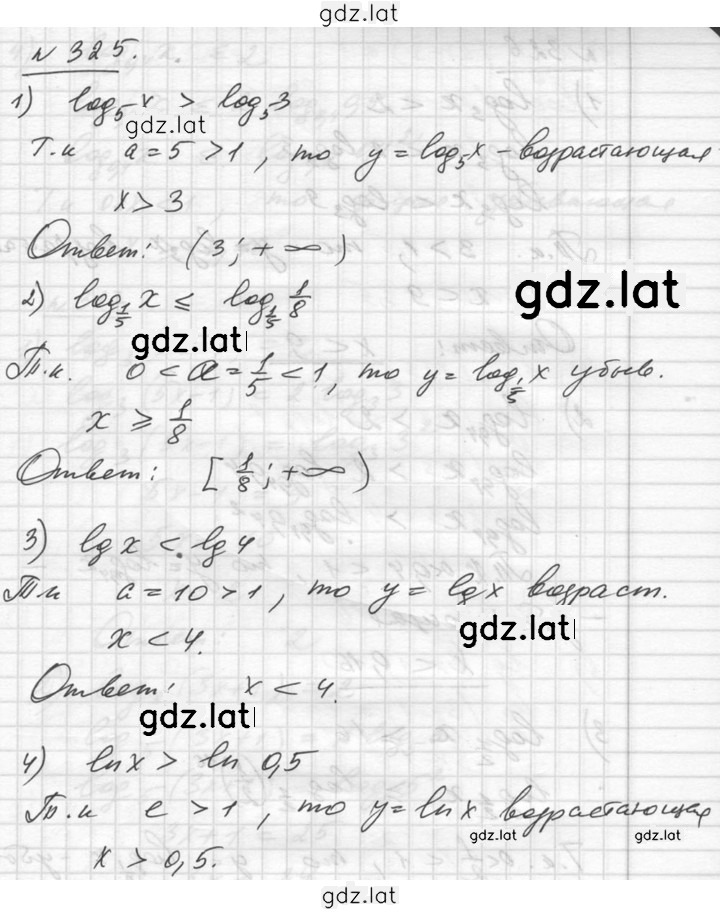 gdz.lat
№ 325.
1) log₅x > log₅3
gdz.lat
Т.к a = 5 > 1, то y = log₅x - возрастающая
x > 3
Ответ: (3; +∞)
2) log_{1/5} x ≤ log_{1/5} 1/8
gdz.lat
gdz.lat
Т.к. 0 < a = 1/5 < 1, то y = log_{1/5} x убыв.
x ≥ 1/8
Ответ: [1/8; +∞)
3) lg x < lg 4
Т.к a = 10 > 1, то y = lg x возраст.
gdz.lat
x < 4.
Ответ: x < 4.
gdz.lat
4) ln x > ln 0,5
Т.к e > 1, то y = ln x возрастающая
gdz.lat gdz.lat
x > 0,5.
gdz.lat